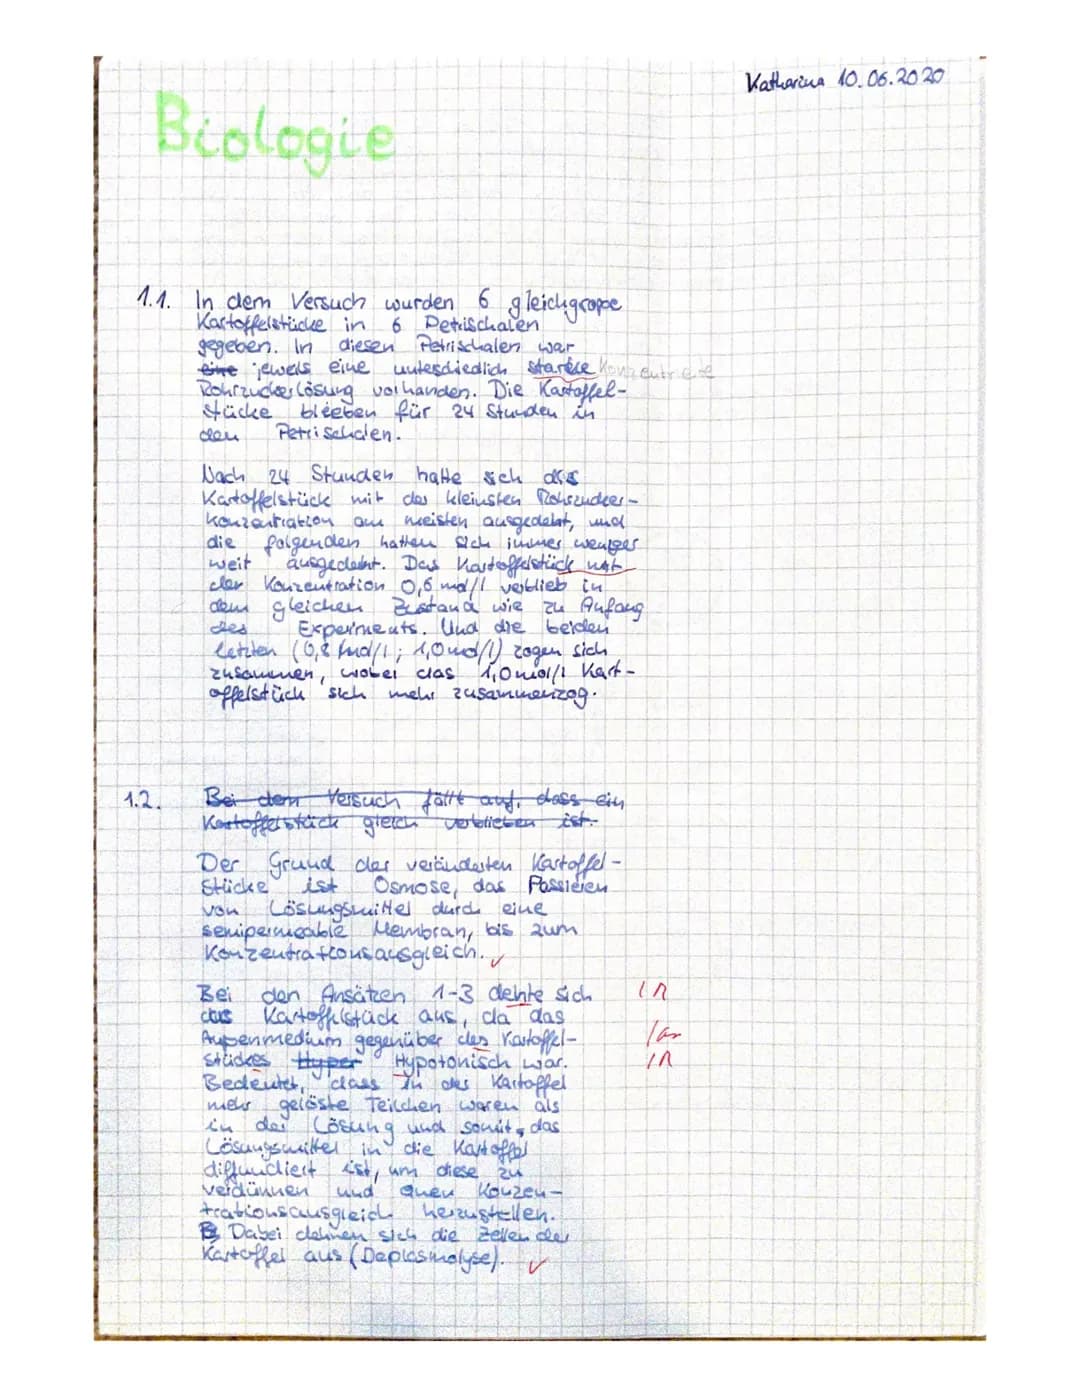 Katharina 10.06.2020
Biologie
1.1. In dem Versuch wurden 6 gleichgroße
Kartoffelstücke in 6 Petrischalen
gegeben. In diesen Petrischalen war
eine jeweils eine unterschiedlich starke Konzentrierte
Rohrzuckerlösung vorhanden. Die Kartoffel-
stücke blieben für 24 Stunden in
den Petrischalen.
Nach 24 Stunden hatte sich das
Kartoffelstück mit der kleinsten Rohrzucker-
konzentration am meisten ausgedehnt, und
die folgenden hatten sich immer weniger
weit ausgedehnt. Das Kartoffelstück mit
der Konzentration 0,6 mol/l verblieb in
dem gleichen Zustand wie zu Anfang
des Experiments. Und die beiden
letzten (0,8 mol/l; 1,0 mol/l) zogen sich
zusammen, wobei das 1,0 mol/l Kart-
offelstück sich mehr zusammenzog.
1.2. Bei dem Versuch fällt auf, dass ein
Kartoffelstück gleich verblieben ist.
Der Grund der veränderten Kartoffel-
stücke ist Osmose, das Passieren
von Lösungsmittel durch eine
semipermeable Membran, bis zum
Konzentrationsausgleich. ✓
Bei den Ansätzen 1-3 dehte sich I R
das Kartoffelstück aus, da das
Außenmedium gegenüber des Kartoffel-
stückes Hyper Hypotonisch war. I R
Bedeutet, dass in der Kartoffel
mehr gelöste Teilchen waren als
in der Lösung und somit, das
Lösungsmittel in die Kartoffel
diffundiert ist, um diese zu
verdünnen und einen Konzen-
trationsausgleich herzustellen.
B Dabei dehnen sich die Zellen der
Kartoffel aus (Deplasmolyse). ✓